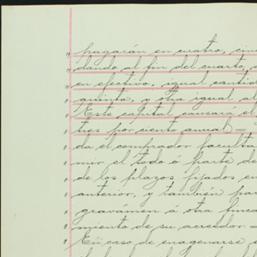 pagarán en cuatro, cinc
dando al fin del cuarto, a
en efectivo, igual cantid
quinto, y otra igual al
Este capital causará el
tres por ciento anual —
da el comprador faculta
mir el todo ó parte de
de los plazos fijados en
anterior, y también para
gravámen á otra finca
miento de su acreedor —
En caso de enagenarse